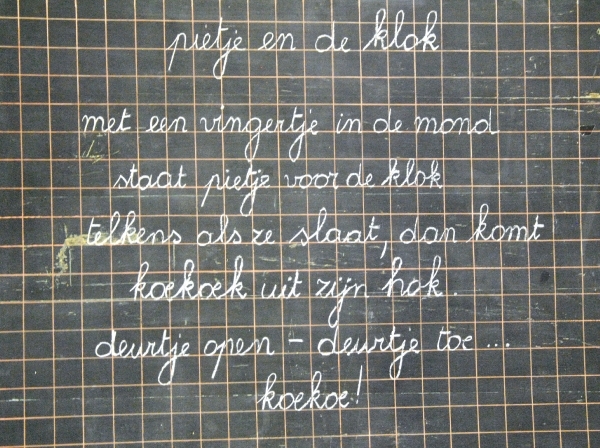 pietje en de klok
met een vingertje in de mond
staat pietje voor de klok
telkens als ze slaat, dan komt
koekoek uit zijn hok.
deurtje open - deurtje toe...
koekoe!